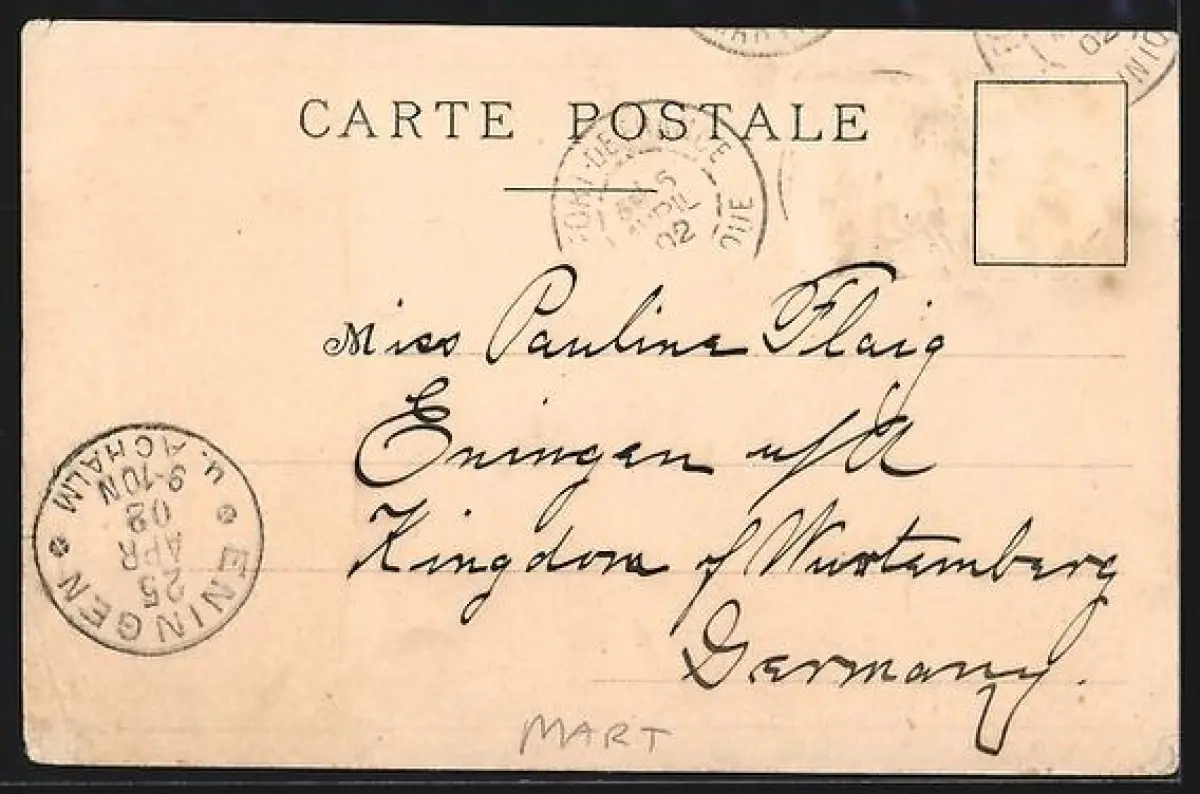 CARTE POSTALE
FORT-DE-
5
AVRIL
02
QUE
02
INIQ
Miss Pauline Flaig
Eningen u/A
Kingdom of Wurtemberg
Germany.
ENINGEN
u. ACHALM
25
APR
02
9-10N
MART